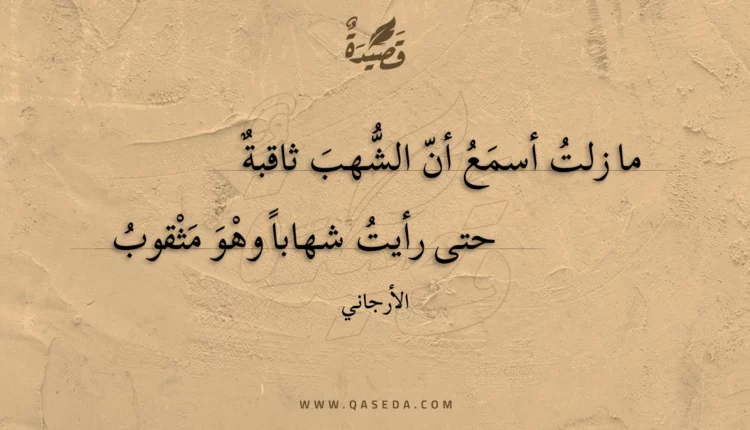 قَصِيْدَةٌ
ما زلتُ أسمَعُ أنّ الشُّهبَ ثاقبةٌ
حتى رأيتُ شهاباً وهْوَ مَثْقوبُ
الأرجاني
WWW.QASEDA.COM